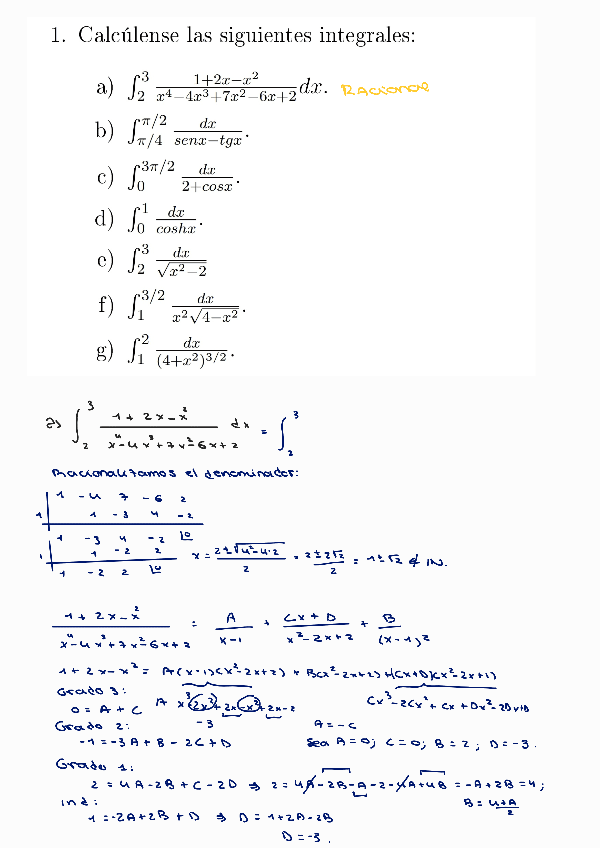 1. Calcúlense las siguientes integrales:
a) ∫_2^3 (1+2x−x²)/(x⁴−4x³+7x²−6x+2) dx. Racional
b) ∫_{π/4}^{π/2} dx/(senx−tgx).
c) ∫_0^{3π/2} dx/(2+cosx).
d) ∫_0^1 dx/(coshx).
e) ∫_2^3 dx/√(x²−2)
f) ∫_1^{3/2} dx/(x²√(4−x²)).
g) ∫_1^2 dx/(4+x²)^{3/2}.
a) ∫_2^3 (1+2x−x²)/(x⁴−4x³+7x²−6x+2) dx = ∫_2^3
Racionalizamos el denominador:
1 -4 7 -6 2
1 1 -3 4 -2
1 -3 4 -2 |0
1 1 -2 2 x = (2±√(4²-4·2))/2 = (2±2√2)/2 = 1±√2 ∉ IN.
1 -2 2 |0
(1+2x−x²)/(x⁴−4x³+7x²−6x+2) = A/(x−1) + (Cx+D)/(x²−2x+2) + B/(x−1)²
1+2x−x² = A(x−1)(x²−2x+2) + B(x²−2x+2)+(Cx+D)(x²−2x+1)
Grado 3: A x³-2x²+2x-x²+2x-2 Cx³-2Cx²+Cx+Dx²-2Dx+D
0 = A + C -3 A = -C
Grado 2: Sea A=0; C=0; B=2; D=-3.
-1 = -3A + B - 2C + D
Grado 1:
2 = 4A - 2B + C - 2D ⇒ 2 = 4A - 2B - A - 2 - 4A + 4B = -A + 2B = 4;
Ind: B = (4+A)/2
1 = -2A + 2B + D ⇒ D = 1+2A-2B
D = -3.